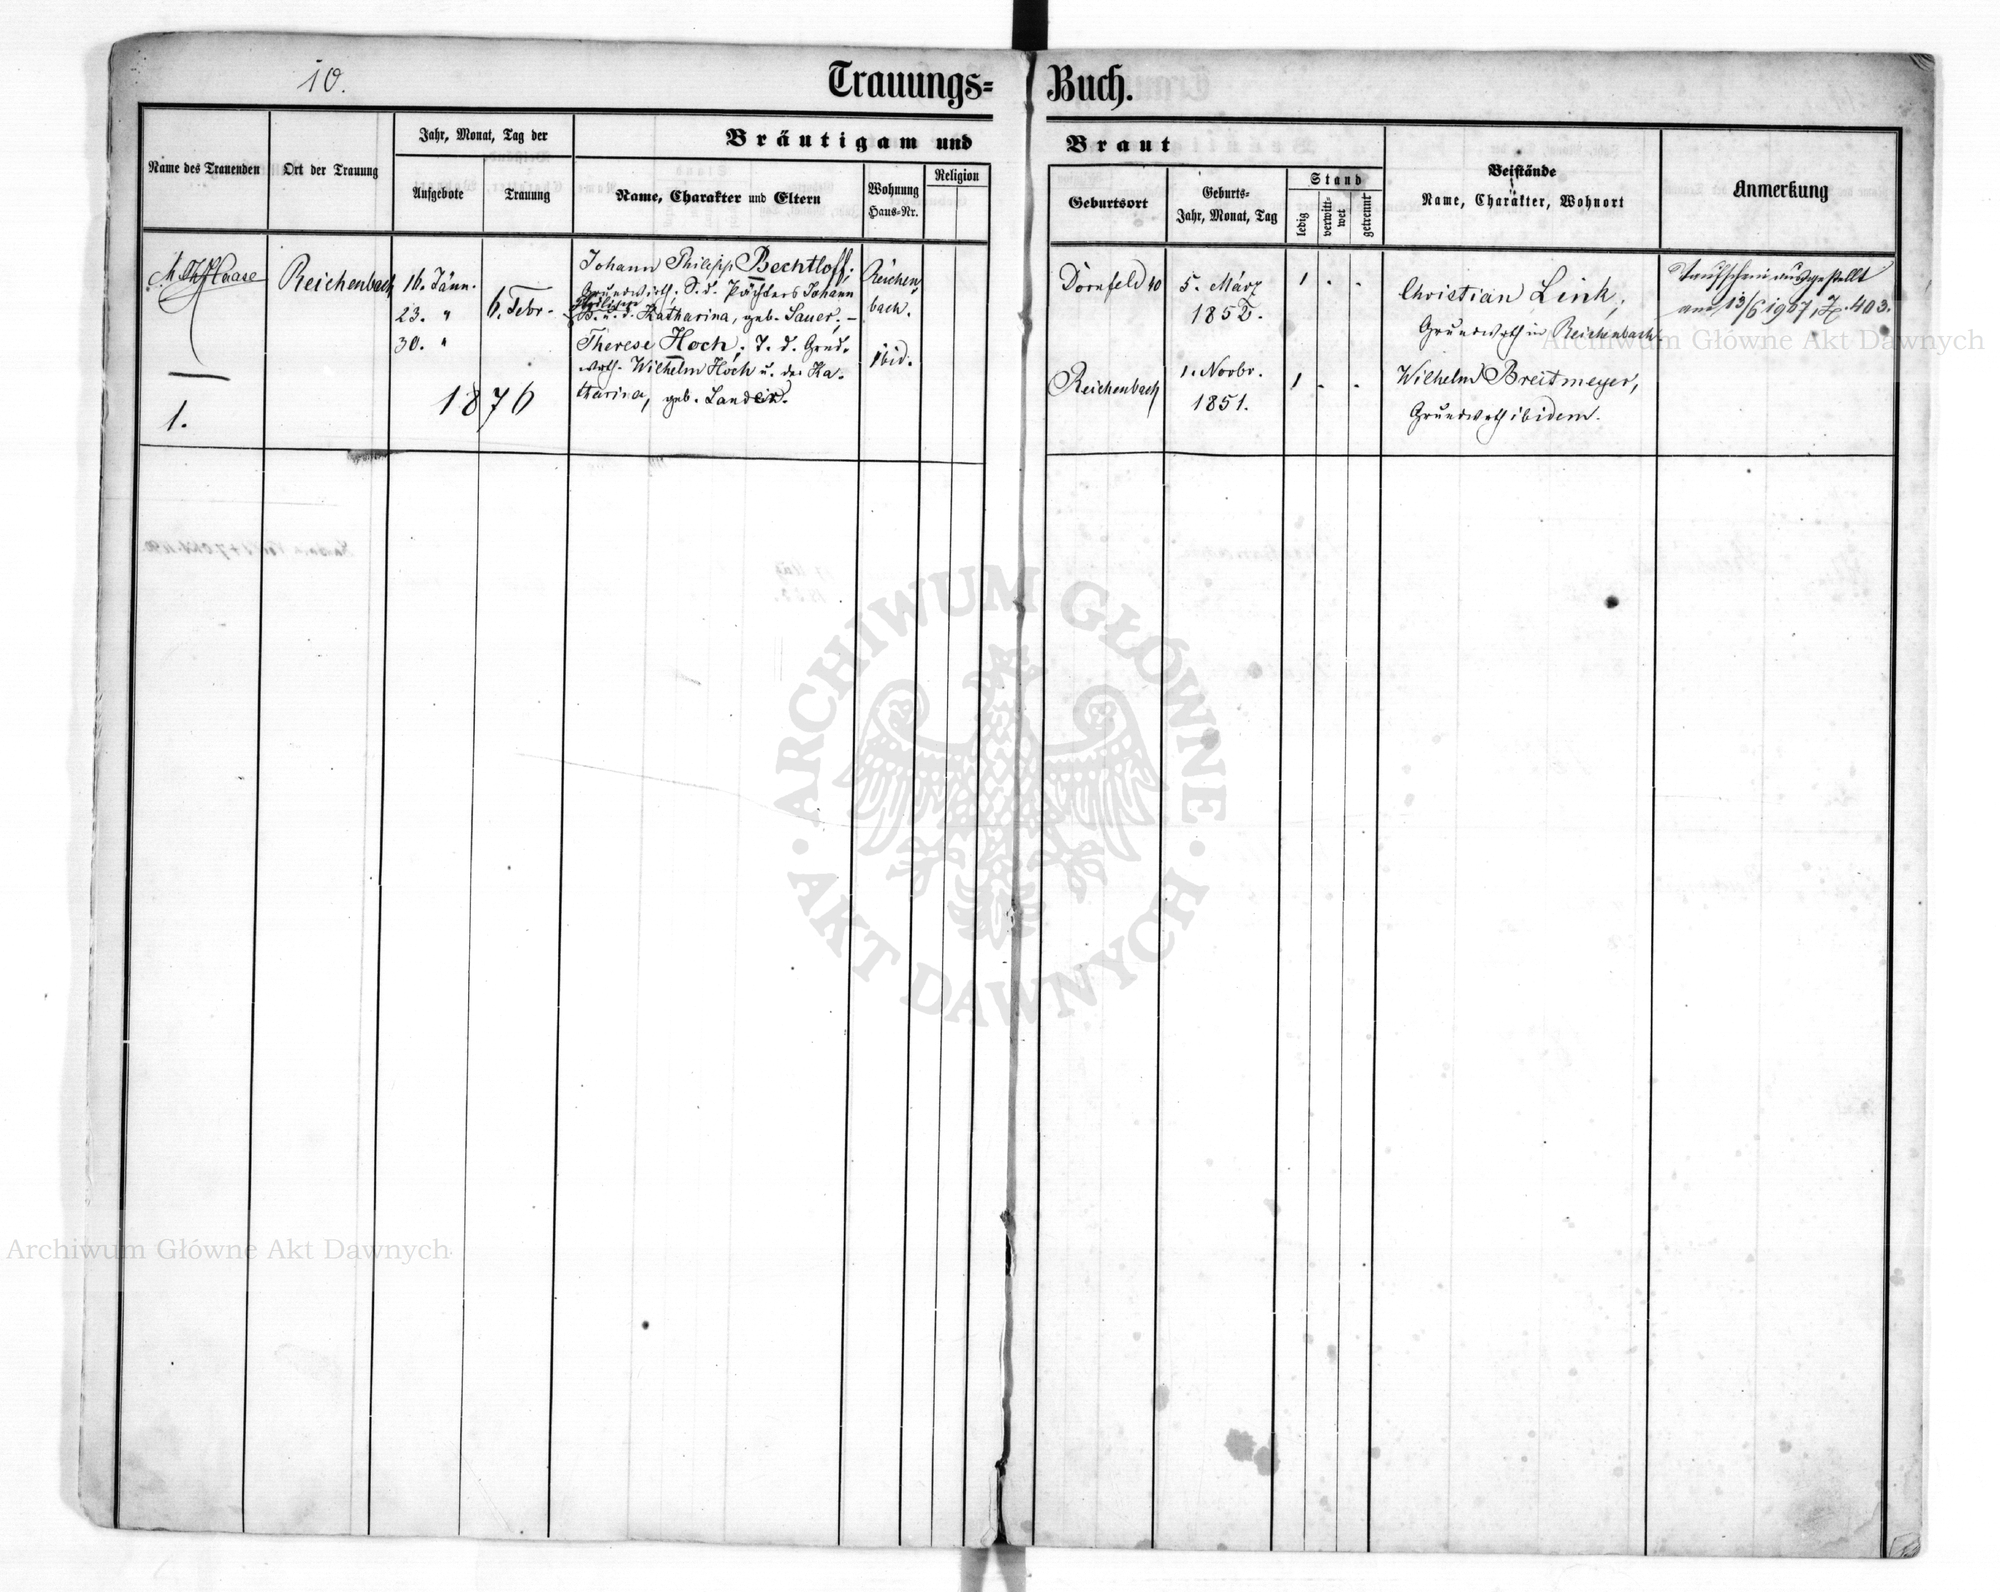 10.
Trauungs=Buch.
Name des Trauenden
Ort der Trauung
Jahr, Monat, Tag der
Aufgebote
Trauung
Bräutigam und Braut
Name, Charakter und Eltern
Wohnung
Haus=Nr.
Religion
Geburtsort
Geburts=
Jahr, Monat, Tag
Stand
ledig
verwitt=
wet
getrennt
Beistände
Name, Charakter, Wohnort
Anmerkung
Haase
1.
Reichenbach
16. Jänn.
23. "
30. "
6. Febr.
1876
Johann Philipp Bechtloff;
Grundwirth. S. d. Pächters Johann
Philipp
B. u. d. Katharina, geb. Sauer; –
Therese Hoch, T. d. Grnd.
wrth. Wilhelm Hoch u. der Ka-
tharina, geb. Lander.
Reichen,
bach.
ibid.
Dornfeld 40
5. März
1852.
1 . .
Reichenbach
1. Novbr.
1851.
1 . .
Christian Link,
Grundwrth in Reichenbach.
Wilhelm Breitmeyer,
Grundwrth ibidem.
Taufschein ausgestellt
am 13/6 1907, Z. 403.
Archiwum Główne Akt Dawnych
ARCHIWUM GŁÓWNE
· AKT DAWNYCH ·
Archiwum Główne Akt Dawnych